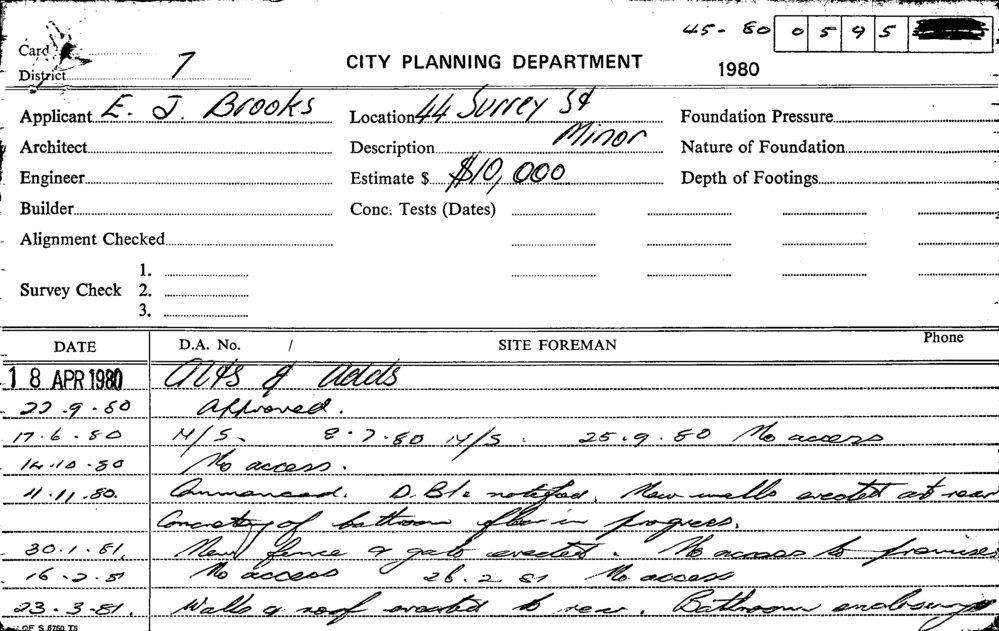 45-80 0595
Card
District 7 CITY PLANNING DEPARTMENT 1980
Applicant E. J. Brooks Location 44 Surrey St Foundation Pressure
Architect Description Minor Nature of Foundation
Engineer Estimate $ $10,000 Depth of Footings
Builder Conc. Tests (Dates)
Alignment Checked
1.
Survey Check 2.
3.
DATE D.A. No. / SITE FOREMAN Phone
18 APR 1980 Alts & Adds
22.9.80 Approved.
17.6.80 N/S. 8.7.80 N/S. 25.9.80 No access
14.10.80 No access.
4.11.80. Commenced. notified. New walls erected at rear
Concrete of bathroom floor in progress.
30.1.81. New fence & gate erected. No access to premises
16.2.81 No access 26.2.81 No access
23.3.81. Walls & roof erected to rear. Bathroom